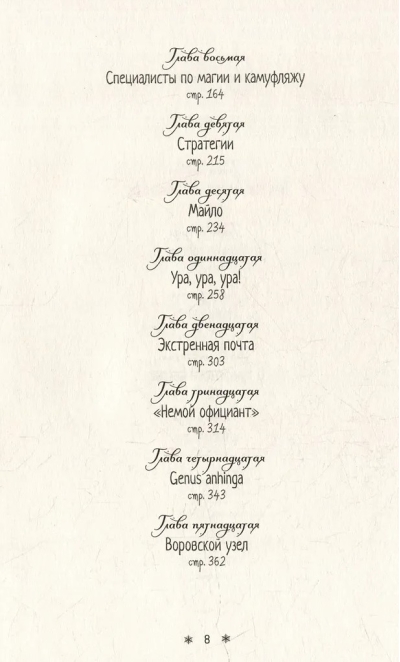 Глава восьмая
Специалисты по магии и камуфляжу
стр. 164
Глава девятая
Стратегии
стр. 215
Глава десятая
Майло
стр. 234
Глава одиннадцатая
Ура, ура, ура!
стр. 258
Глава двенадцатая
Экстренная почта
стр. 303
Глава тринадцатая
«Немой официант»
стр. 314
Глава четырнадцатая
Genus anhinga
стр. 343
Глава пятнадцатая
Воровской узел
стр. 362
8